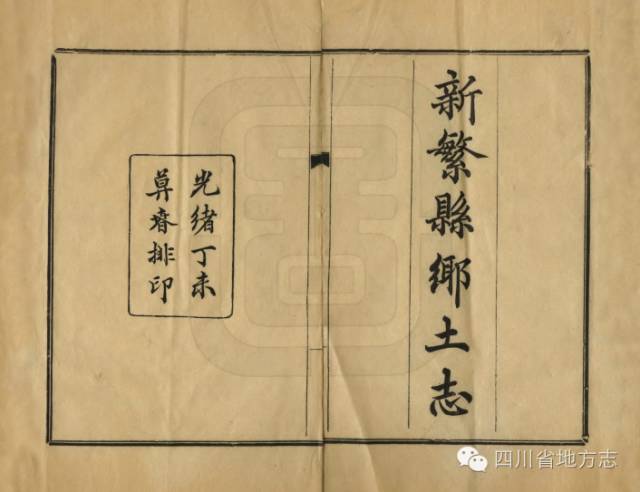 新繁縣鄉土志
光緒丁未
莫春排印
四川省地方志